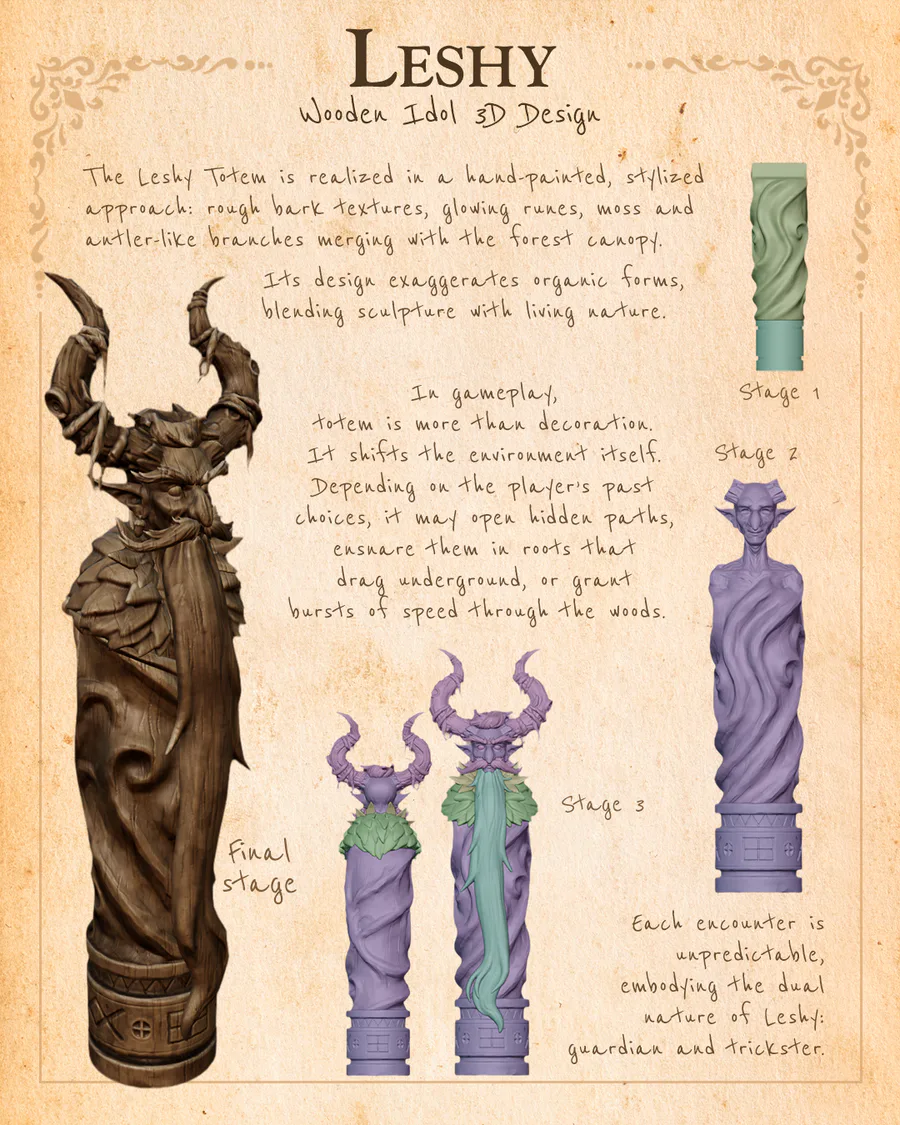 LESHY
Wooden Idol 3D Design
The Leshy Totem is realized in a hand-painted, stylized
approach: rough bark textures, glowing runes, moss and
antler-like branches merging with the forest canopy.
Its design exaggerates organic forms,
blending sculpture with living nature.
In gameplay,
totem is more than decoration.
It shifts the environment itself.
Depending on the player's past
choices, it may open hidden paths,
ensnare them in roots that
drag underground, or grant
bursts of speed through the woods.
Stage 1
Stage 2
Stage 3
Final
stage
Each encounter is
unpredictable,
embodying the dual
nature of Leshy:
guardian and trickster.